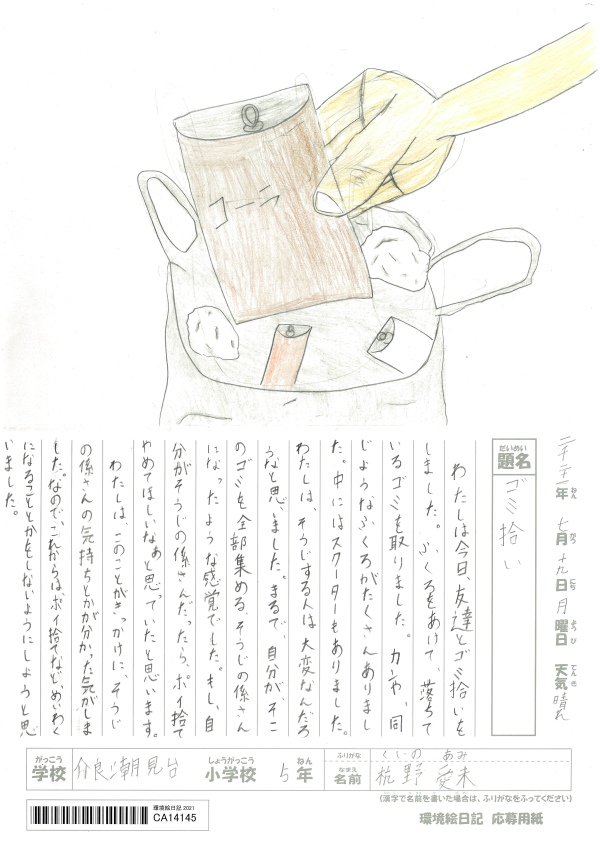 コーラ
二千二十一年ねん 七月がつ 十九日にち 月曜日ようび 天気てんき 晴れ
だいめい
題名 ゴミ拾い
わたしは今日、友達とゴミ拾いを
しました。ふくろをあけて、落ちて
いるゴミを取りました。カンや、同
じようなふくろがたくさんありまし
た。中にはスクーターもありました。
わたしは、そうじする人は大変なんだろ
うなと思いました。まるで、自分が、そこ
のゴミを全部集める、そうじの係さん
になったような感覚でした。もし、自
分がそうじの係さんだったら、ポイ捨て
やめてほしいなぁと思っていたと思います。
わたしは、このことがきっかけに、そうじ
の係さんの気持ちとかが分かった気がしま
した。なので、これからは、ポイ捨てなど、めいわく
になることとかをしないようにしようと思
いました。
がっこう しょうがっこう ねん
学校 介良潮見台 小学校 5年
ふりがな くいの あみ
なまえ
名前 杭野 愛未
(漢字で名前を書いた場合は、ふりがなをふってください)
環境絵日記 2021
CA14145
環境絵日記 応募用紙